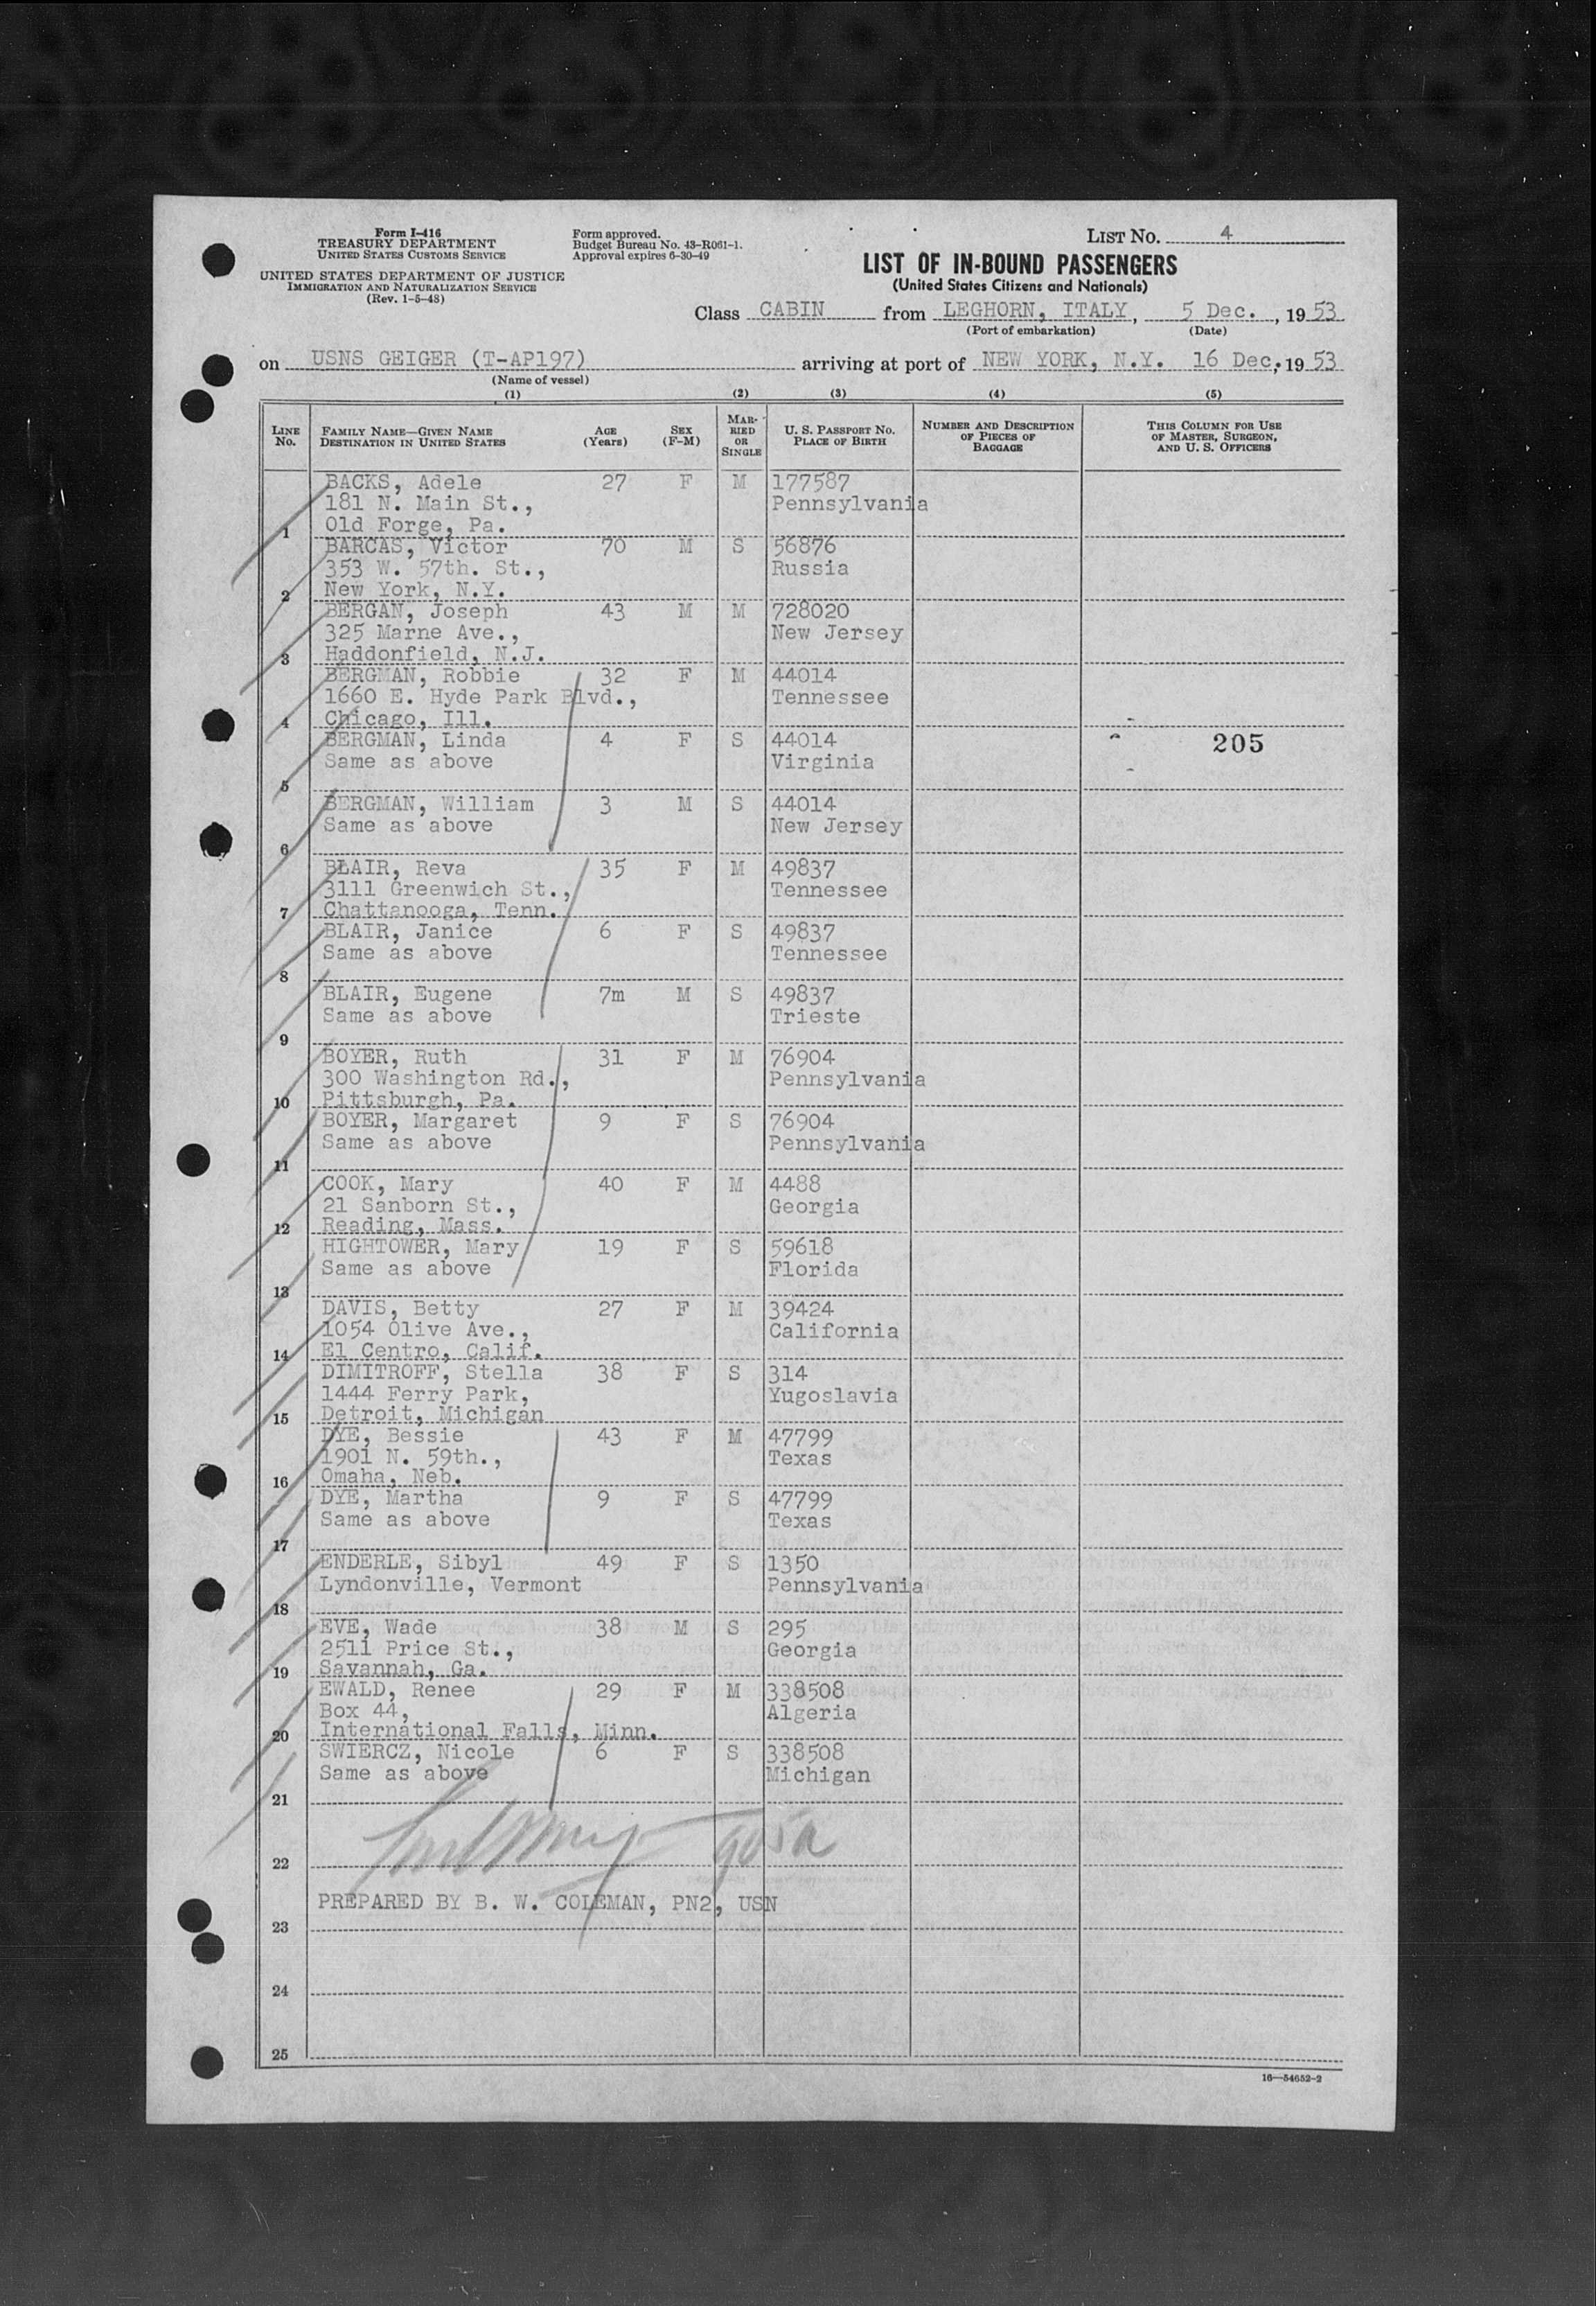 Form I-416
TREASURY DEPARTMENT
UNITED STATES CUSTOMS SERVICE
UNITED STATES DEPARTMENT OF JUSTICE
IMMIGRATION AND NATURALIZATION SERVICE
(Rev. 1-5-48)
Form approved.
Budget Bureau No. 43-R061-1.
Approval expires 6-30-49
LIST NO. 4
LIST OF IN-BOUND PASSENGERS
(United States Citizens and Nationals)
Class CABIN from LEGHORN, ITALY, 5 Dec., 1953
(Port of embarkation) (Date)
on USNS GEIGER (T-AP197) arriving at port of NEW YORK, N.Y. 16 Dec, 1953
(Name of vessel)
(1) (2) (3) (4) (5)
LINE No. FAMILY NAME—GIVEN NAME DESTINATION IN UNITED STATES AGE (Years) SEX (F-M) MARRIED OR SINGLE U. S. PASSPORT NO. PLACE OF BIRTH NUMBER AND DESCRIPTION OF PIECES OF BAGGAGE THIS COLUMN FOR USE OF MASTER, SURGEON, AND U. S. OFFICERS
BACKS, Adele 27 F M 177587
181 N. Main St., Pennsylvania
1 Old Forge, Pa.
BARCAS, Victor 70 M S 56876
353 W. 57th. St., Russia
2 New York, N.Y.
BERGAN, Joseph 43 M M 728020
325 Marne Ave., New Jersey
3 Haddonfield, N.J.
BERGMAN, Robbie 32 F M 44014
1660 E. Hyde Park Blvd., Tennessee
4 Chicago, Ill.
BERGMAN, Linda 4 F S 44014 205
Same as above Virginia
5
BERGMAN, William 3 M S 44014
Same as above New Jersey
6
BLAIR, Reva 35 F M 49837
3111 Greenwich St., Tennessee
7 Chattanooga, Tenn.
BLAIR, Janice 6 F S 49837
Same as above Tennessee
8
BLAIR, Eugene 7m M S 49837
Same as above Trieste
9
BOYER, Ruth 31 F M 76904
300 Washington Rd., Pennsylvania
10 Pittsburgh, Pa.
BOYER, Margaret 9 F S 76904
Same as above Pennsylvania
11
COOK, Mary 40 F M 4488
21 Sanborn St., Georgia
12 Reading, Mass.
HIGHTOWER, Mary 19 F S 59618
Same as above Florida
13
DAVIS, Betty 27 F M 39424
1054 Olive Ave., California
14 El Centro, Calif.
DIMITROFF, Stella 38 F S 314
1444 Ferry Park, Yugoslavia
15 Detroit, Michigan
DYE, Bessie 43 F M 47799
1901 N. 59th., Texas
16 Omaha, Neb.
DYE, Martha 9 F S 47799
Same as above Texas
17
ENDERLE, Sibyl 49 F S 1350
Lyndonville, Vermont Pennsylvania
18
EVE, Wade 38 M S 295
2511 Price St., Georgia
19 Savannah, Ga.
EWALD, Renee 29 F M 338508
Box 44, Algeria
20 International Falls, Minn.
SWIERCZ, Nicole 6 F S 338508
Same as above Michigan
21
22
PREPARED BY B. W. COLEMAN, PN2, USN
23
24
25
16—54652-2